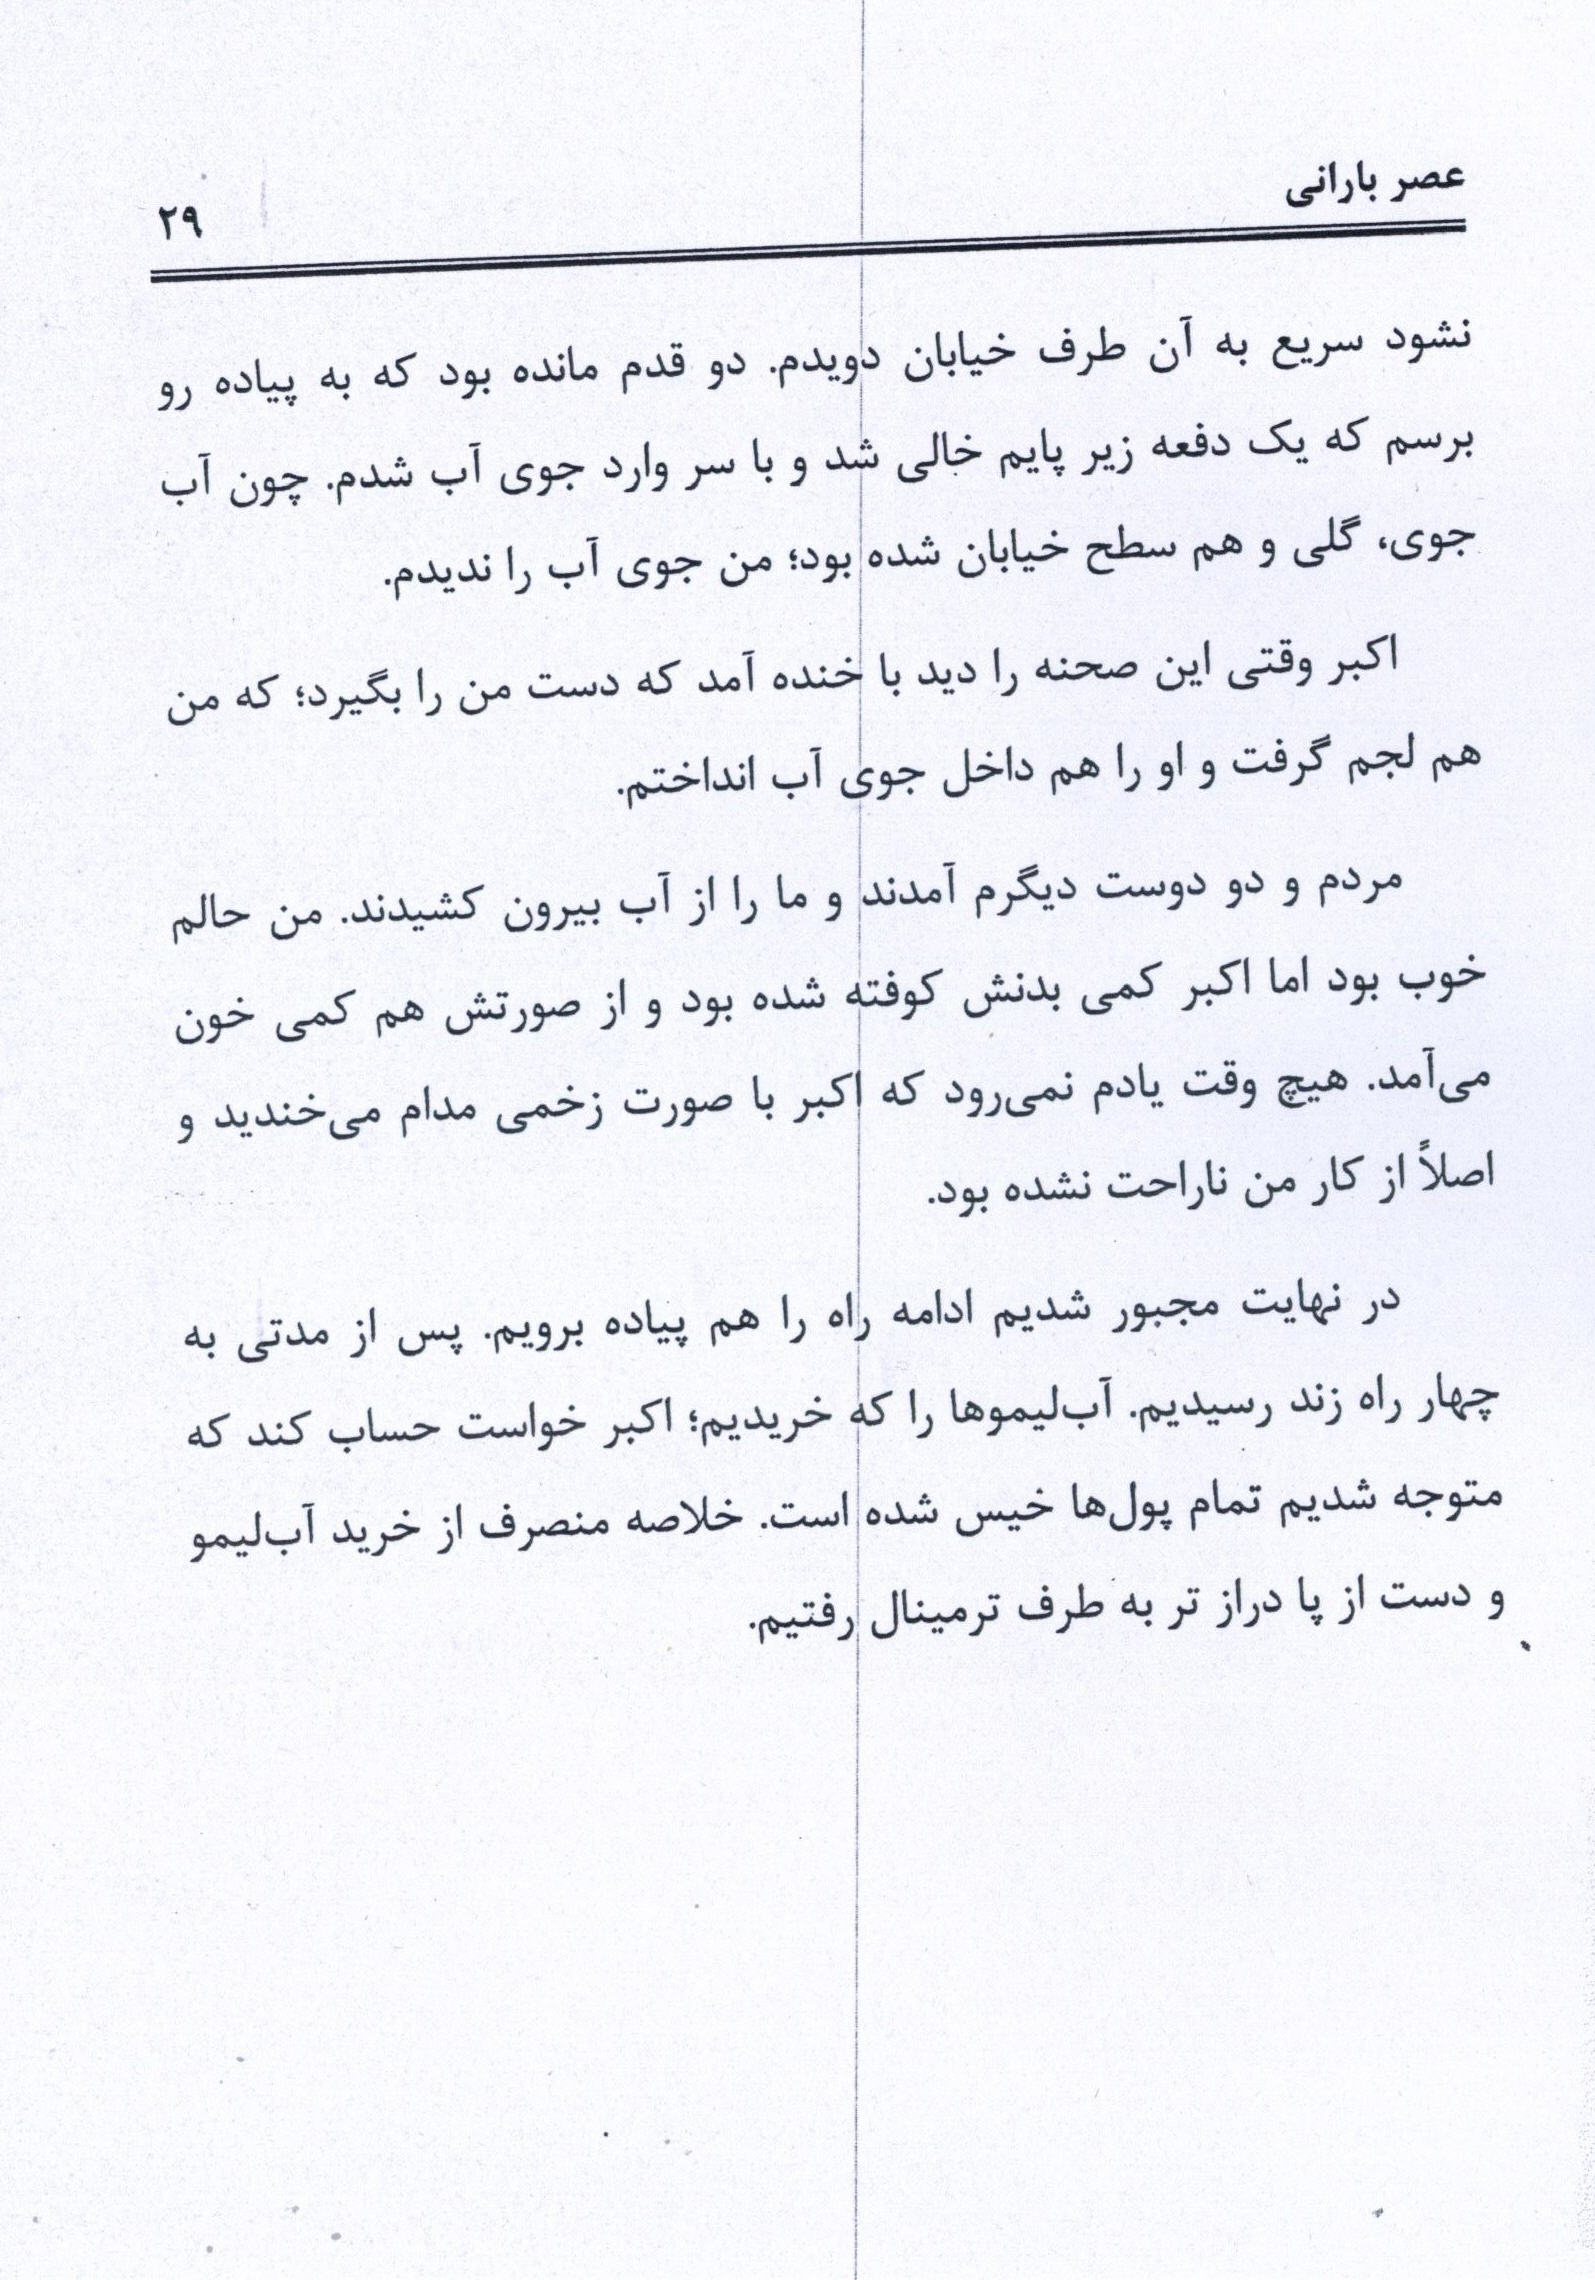 عصر بارانی
۲۹
نشود سریع به آن طرف خیابان دویدم. دو قدم مانده بود که به پیاده رو
برسم که یک دفعه زیر پایم خالی شد و با سر وارد جوی آب شدم. چون آب
جوی، گلی و هم سطح خیابان شده بود؛ من جوی آب را ندیدم.
اکبر وقتی این صحنه را دید با خنده آمد که دست من را بگیرد؛ که من
هم لجم گرفت و او را هم داخل جوی آب انداختم.
مردم و دو دوست دیگرم آمدند و ما را از آب بیرون کشیدند. من حالم
خوب بود اما اکبر کمی بدنش کوفته شده بود و از صورتش هم کمی خون
می‌آمد. هیچ وقت یادم نمی‌رود که اکبر با صورت زخمی مدام می‌خندید و
اصلاً از کار من ناراحت نشده بود.
در نهایت مجبور شدیم ادامه راه را هم پیاده برویم. پس از مدتی به
چهار راه زند رسیدیم. آب‌لیموها را که خریدیم؛ اکبر خواست حساب کند که
متوجه شدیم تمام پول‌ها خیس شده است. خلاصه منصرف از خرید آب‌لیمو
و دست از پا دراز تر به طرف ترمینال رفتیم.